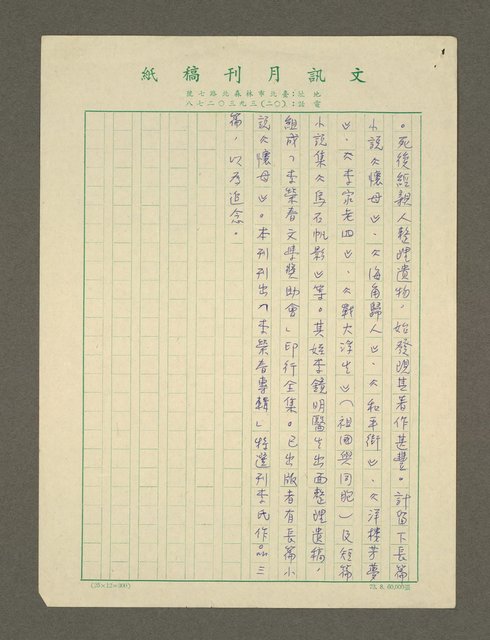 文訊月刊稿紙
地址:臺北市林森北路七號
電話:(〇二)三九三〇二七八
。死後經親人整理遺物，始發現其著作甚豐。計留下長篇
小說《懷母》、《海角歸人》、《和平街》、《洋樓芳夢
》、《李家老四》、《戰大浮生》(祖國與同胞)及短篇
小說集《烏石帆影》等。其姪李鏡明醫生出面整理遺稿，
組成「李榮春文學獎助會」印行全集。已出版者有長篇小
說《懷母》。本刊刊出「李榮春專輯」特選刊李氏作品三
篇，以為追念。
(25×12=300)
73.8.60,000